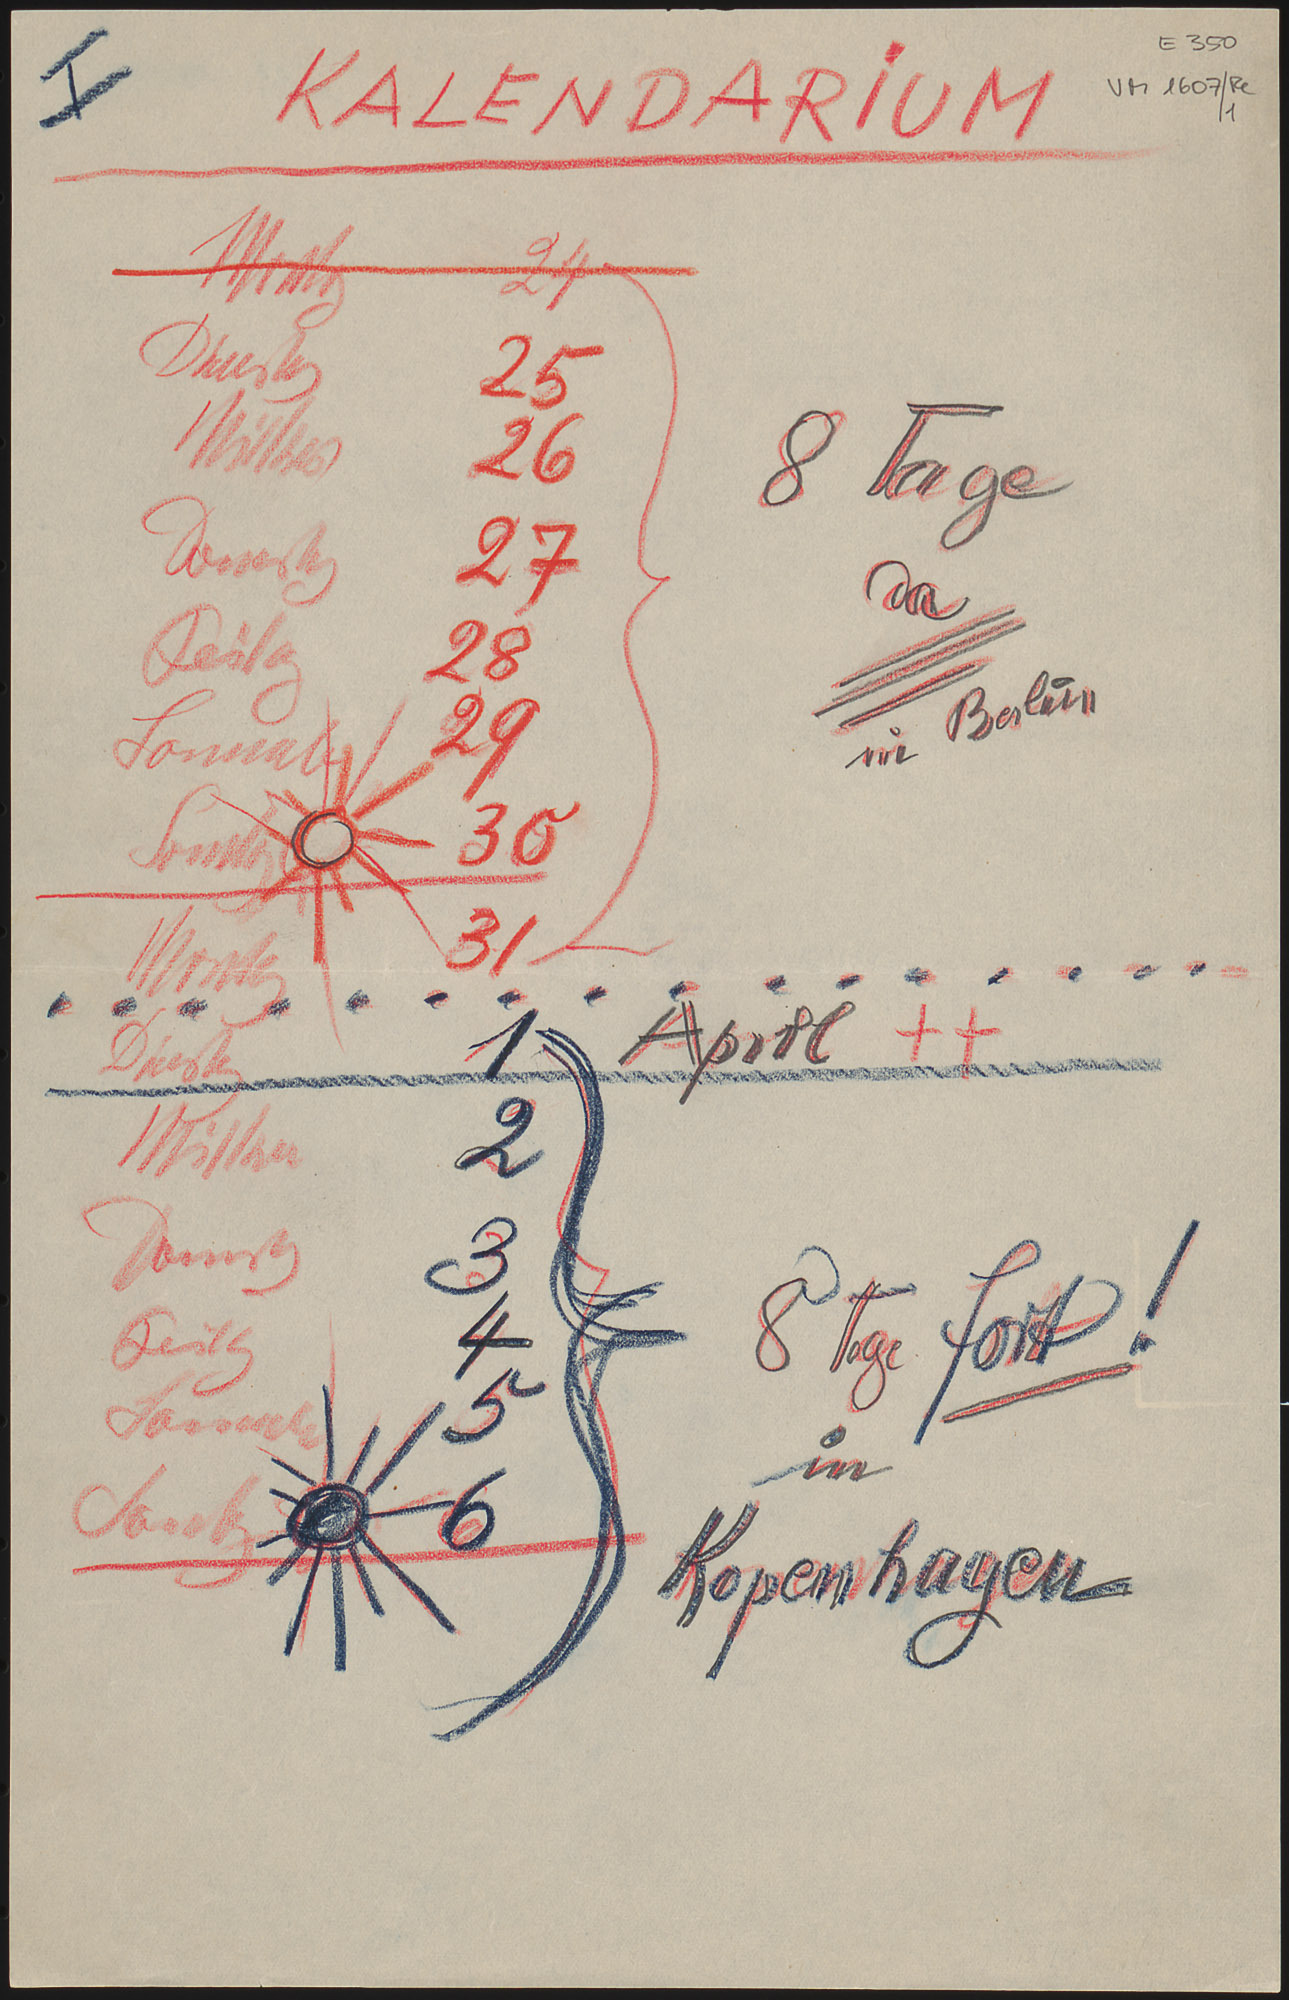 I KALENDARIUM
E 350
VM 1607/Re
/1
Montg 24
Dienstg 25
Mittwo 26
Donnerstg 27
Freitag 28
Sonnab 29
Sonntg 30
Montg 31
8 Tage
da
in Berlin
Dienstg 1 April ++
Mittwo 2
Donnerstg 3
Freitg 4
Sonnab 5
Sonntg 6
8 Tage fort!
in
Kopenhagen